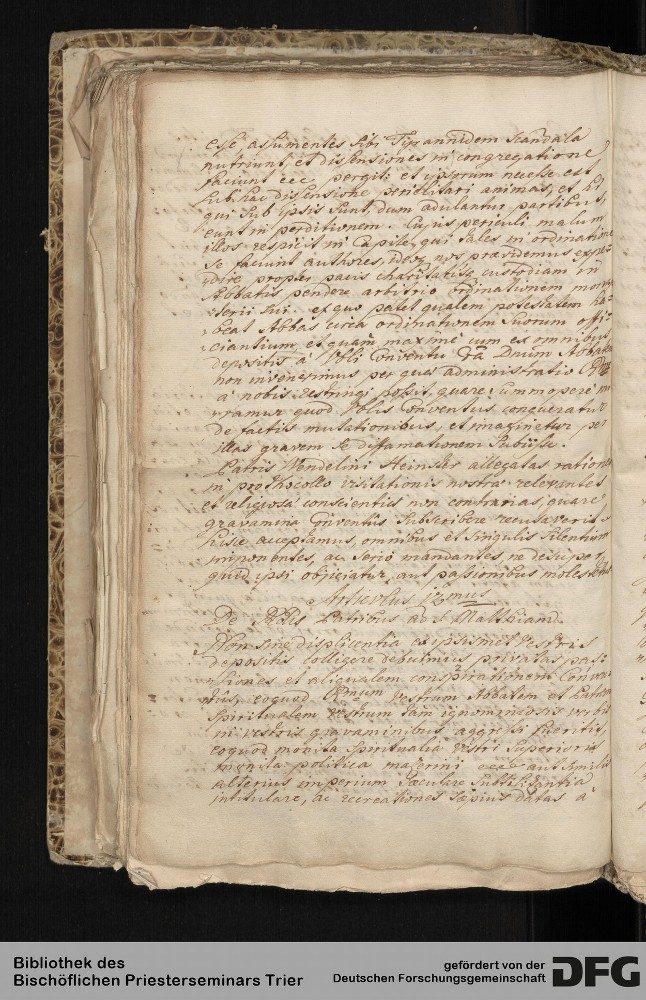 esse, assumentes sibi Tirannidem scandala
nutriunt, et dissensiones in congregatione
faciunt etc. pergit: et ipsorum necesse est
sub hac dissensione periclitari animas, et hi
qui sub ipsis sunt, dum adulantur partibus,
eunt in perditionem. Cujus periculi malum
illos respicit in Capite, qui tales in ordinatione
se faciunt authores, ideo nos praevidemus expe-
dire propter pacis charitatisque custodiam in
Abbatis pendere arbitrio ordinationem mona-
sterii sui. ex quo patet qualem potestatem ha-
beat Abbas circa ordinationem suorum offi-
ciantium, et quam maxime cum ex omnibus
depositis a Vobis Conventu Dnum Abbatem
non invenerimus per quas administratio
a nobis restringi possit, quare summopere
ramur quod Vobis Conventus conqueratur
de factis mutationibus, et imaginetur per
illas gravem se diffamationem subiisse.
Patris Wendelini Heinster allegatas rationes
in prothocollo visitationis nostra relevantes
et religiosa conscientia non contrarias, quare
gravamina Conventus subscribere recusaverit
hisce acceptamus, omnibus et singulis silentium
imponentes, ac serio mandantes ne desuper
quid ipsi objiciatur, aut passionibus molestetur
Articulus mus
De Patribus ad S. Matthiam
Non sine displicentia ex ipsismet vestris
depositis colligere debuimus privatas pas-
siones et aliqualem conspirationem Conven-
tus, eoquod vestrum Abbatem et Patrem
spiritualem vestrum tam ignominiosis verbis
in vestris gravaminibus aggressi fueritis,
eoquod monita spiritualia vestri superioris
monita politica aut similis
alterius imperium saeculare substantia
intitulare, ac recreationes saepius datas a
Bibliothek des
Bischöflichen Priesterseminars Trier
gefördert von der
Deutschen Forschungsgemeinschaft
DFG